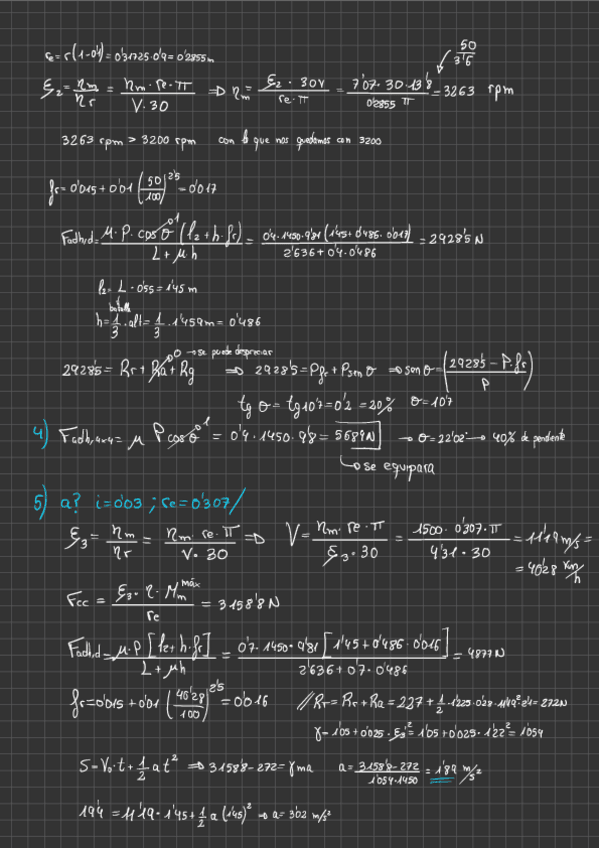 re = r(1-0'1) = 0'31725·0'9 = 0'2855m
50/3'6
ξ₂ = ηm/ηr = ηm·re·π / V·30 ⇒ ηm = ξ₂·30V / re·π = 7'07·30·13'8 / 0'2855 π = 3263 rpm
3263 rpm > 3200 rpm con lo que nos quedamos con 3200
fr = 0'015 + 0'01 (50/100)^2'5 = 0'017
Fadh,d = μ·P·cosθ¹ (l₂+h·fr) / L+μh = 0'4·1450·9'81 (1'45+0'486·0'017) / 2'636+0'4·0'486 = 2928'5 N
l₂ = L·0'55 = 1'45 m
batalla
h = 1/3·alt = 1/3·1'459m = 0'486
2928'5 = Rr + Ra⁰ + Rg → se puede despreciar ⇒ 2928'5 = Pfr + Psenθ ⇒ senθ = (2928'5 - P·fr / P)
tg θ = tg 10'7 = 0'2 = 20% θ = 10'7
4) Fadh,4x4 = μ P cosθ¹ = 0'4·1450·9'8 = 5689N → θ = 22'02 → 40% de pendiente
↳ se equipara
5) a? i = 0'03 ; re = 0'307/
ξ₃ = ηm/ηr = ηm·re·π / V·30 ⇒ V = ηm·re·π / ξ₃·30 = 1500·0'307·π / 4'31·30 = 11'19 m/s =
= 40'28 Km/h
Fcc = ξ₃·η·Mm^máx / re = 3158'8 N
Fadh,d = μ·P [l₂+h·fr] / L+μh = 0'7·1450·9'81 [1'45+0'486·0'016] / 2'636+0'7·0'486 = 4877N
fr = 0'015 + 0'01 (40'28/100)^2'5 = 0'016 // Rr = Rr + Ra = 227 + 1/2·1'225·0'28·11'19²·2'1 = 272N
γ = 1'05 + 0'025·ξ₃² = 1'05 + 0'025·1'22² = 1'054
S = V₀·t + 1/2 a t² ⇒ 3158'8 - 272 = γma a = 3158'8-272 / 1'054·1450 = 1'89 m/s²
19'4 = 11'19·1'45 + 1/2 a (1'45)² ⇒ a = 3'02 m/s²